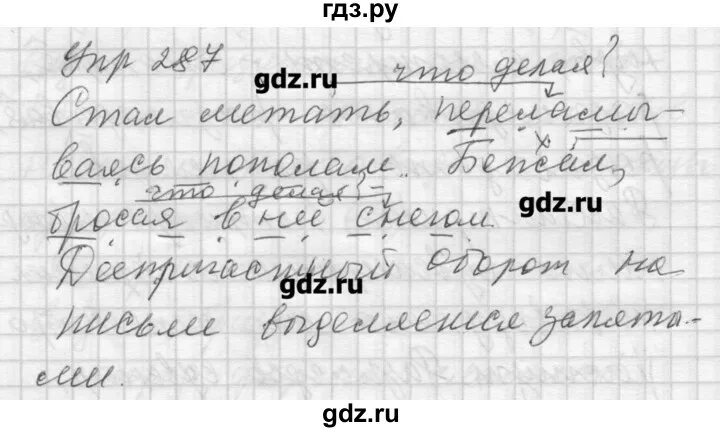 гдз.ру
Упр 287
gdz.ru
что делая?
Стал метать, переламы-
ваясь пополам. Бежал,
что делая?
gdz.ru
бросая в неё снегом
Деепричастный оборот на
gdz.ru
письме выделяется запята-
ми.
gdz.ru